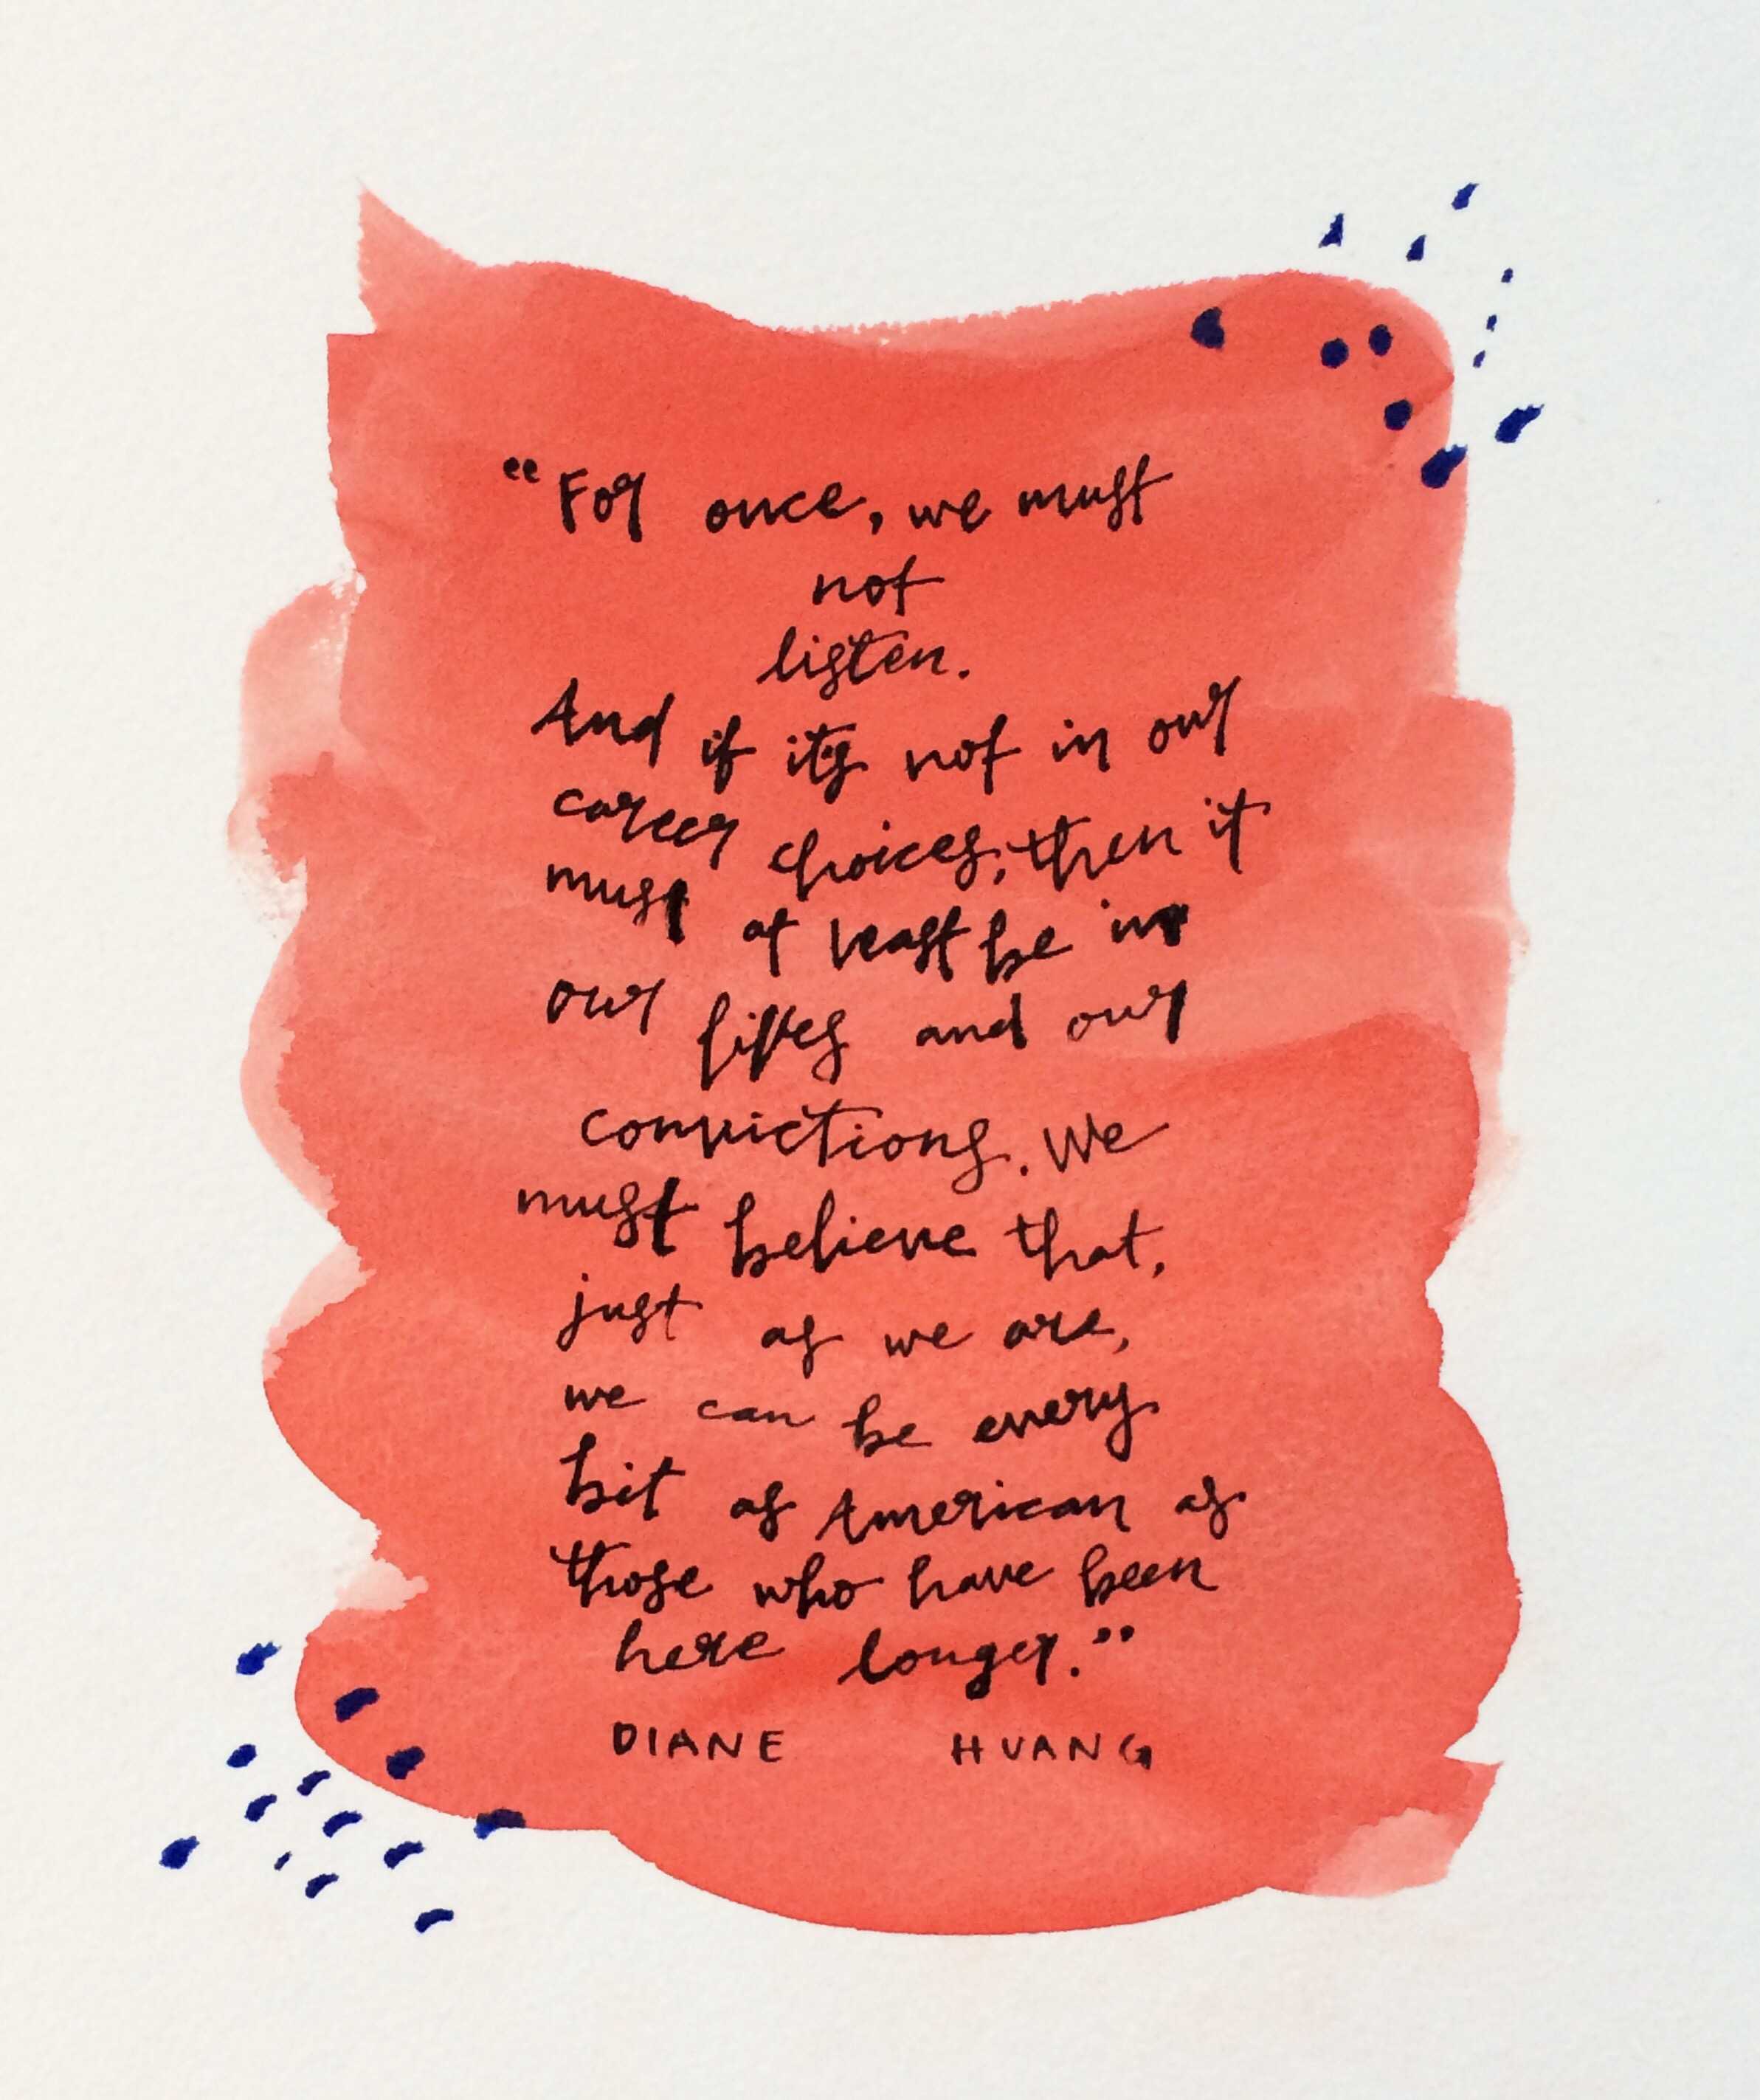 "For once, we must
not
listen.
And if it's not in our
career choices, then it
must at least be in
our lives and our
convictions. We
must believe that,
just as we are,
we can be every
bit as American as
those who have been
here longer."
DIANE HUANG